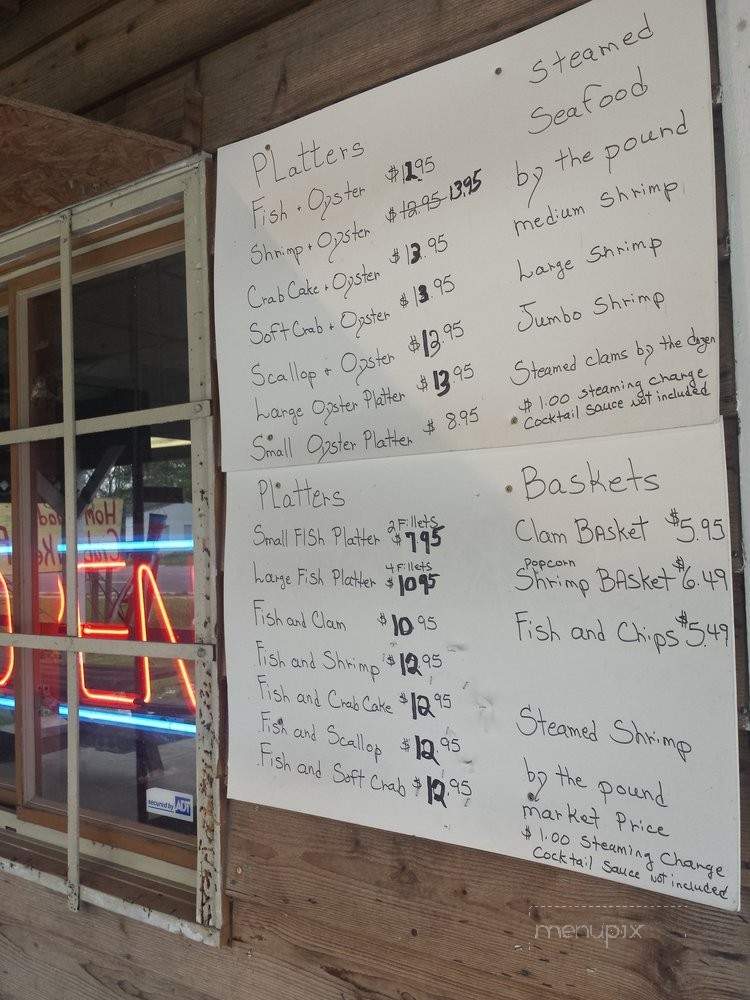 Platters
Fish + Oyster $12.95
Shrimp + Oyster $12.95 13.95
Crab Cake + Oyster $13.95
Soft Crab + Oyster $13.95
Scallop + Oyster $13.95
Large Oyster Platter $13.95
Small Oyster Platter $8.95
Steamed
Seafood
by the pound
medium shrimp
Large Shrimp
Jumbo Shrimp
Steamed clams by the dozen
$1.00 steaming charge
Cocktail sauce not included
Platters
2 Fillets
Small FISh Platter $7.95
4 fillets
Large Fish Platter $10.95
Fish and Clam $10.95
Fish and Shrimp $12.95
Fish and Crab Cake $12.95
Fish and Scallop $12.95
Fish and Soft Crab $12.95
Baskets
Clam BAsket $5.95
Popcorn
Shrimp BAsket $6.49
Fish and Chips $5.49
Steamed Shrimp
by the pound
market Price
$1.00 steaming Charge
Cocktail Sauce Not included
secured by ADT
menupix